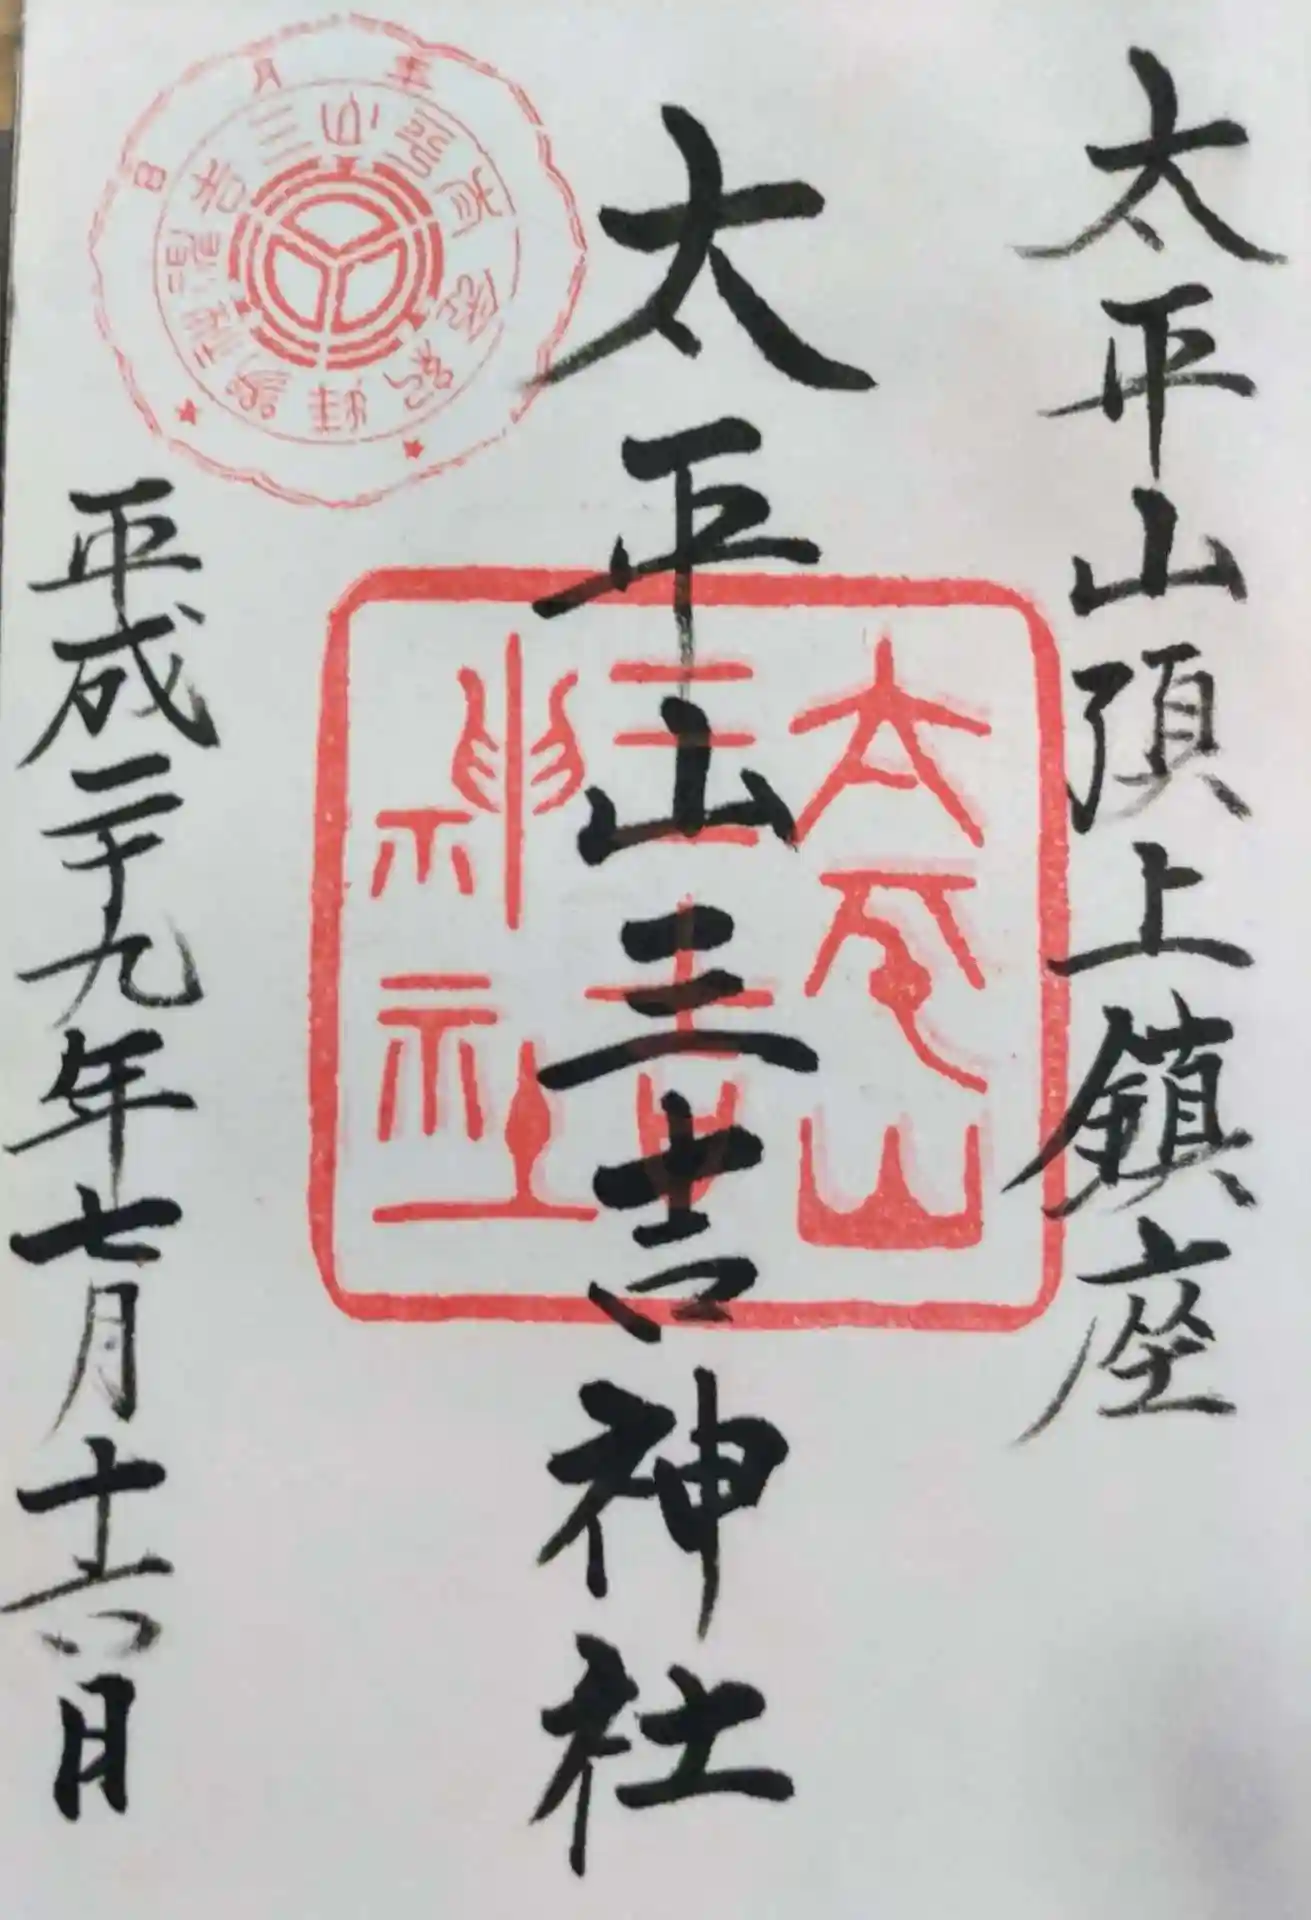 太平山頂上鎮座
太平山三吉神社
太平山
三吉
神社
年月日
平成二十九年七月十六日